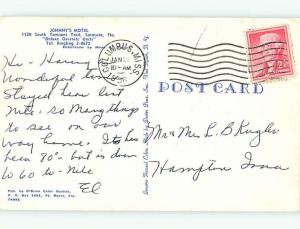 JOHNNY'S MOTEL
1120 South Tamiami Trail, Sarasota, Fla.
"Deluxe Overnite Units"
Tel. Ringling 2-0672
Hi - Harry
Wonderful time
Stayed here last
nite. so many things
to see on our
way home. Its has
been 80° - but is down
to 60 to - Nite
El
Pub. by O'Brien Color Studios,
P. O. Box 1495, Ft. Myers, Fla.
74995
COLUMBUS, MISS.
JAN 27
10 - AM
2¢
POST CARD
Mr & Mrs L. B Kugler
Hampton Iowa